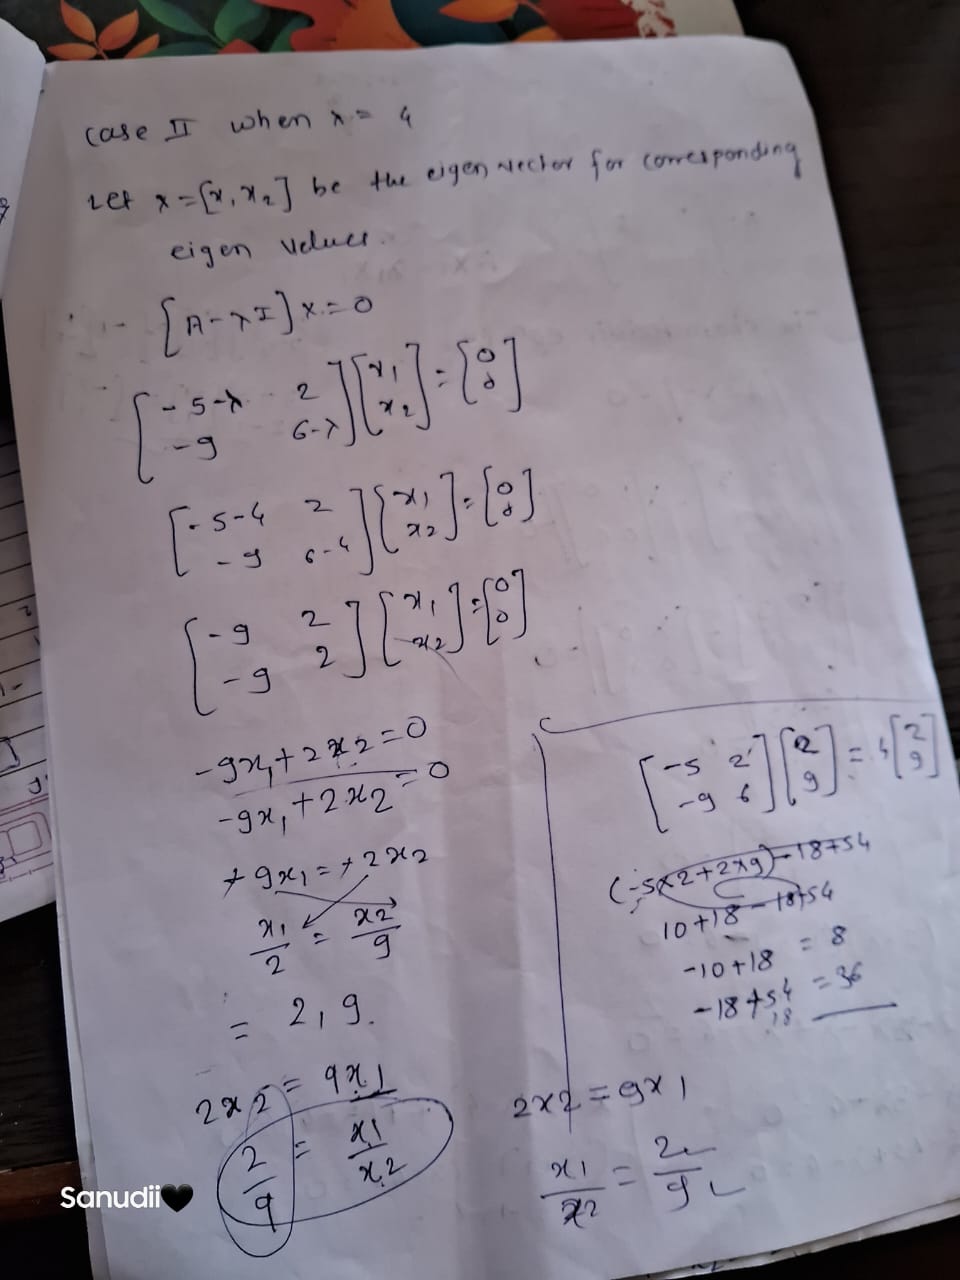 case II when λ = 4
Let x = [x, x2] be the eigen vector for corresponding
eigen values.
[A - λI] x = 0
[-5-λ 2
-9 6-λ] [x1
x2] = [0
0]
[-5-4 2
-9 6-4] [x1
x2] = [0
0]
[-9 2
-9 2] [x1
x2] = [0
0]
-9x1 + 2x2 = 0
-9x1 + 2x2 = 0
+9x1 = +2x2
x1/2 = x2/9
= 2, 9.
2x2 = 9x1
2/9 = x1/x2
[-5 2
-9 6] [2
9] = 4 [2
9]
(-5x2+2x9) - 18+54
10+18 - 18+54
-10+18 = 8
-18+54 = 36
18
2x2 = 9x1
x1/x2 = 2/9
Sanudii🖤